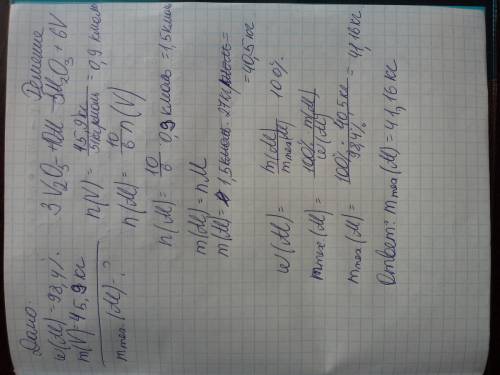 Дано:
w(Al) = 98,4%
m(V) = 45,9 кг
mтех.(Al) - ?
Решение
3V₂O₅ + 10Al → 5Al₂O₃ + 6V
n(V) = 45,9кг / 51кг/кмоль = 0,9 кмоль
n(Al) = 10/6 n(V)
n(Al) = 10/6 · 0,9 кмоль = 1,5 кмоль
m(Al) = nM
m(Al) = 1,5 кмоль · 27 кг/кмоль =
= 40,5 кг
w(Al) = m(Al) / mтех(Al) 100%
mтех(Al) = 100% m(Al) / w(Al)
mтех(Al) = 100% · 40,5кг / 98,4% = 41,16 кг
Ответ: mтех(Al) = 41,16 кг